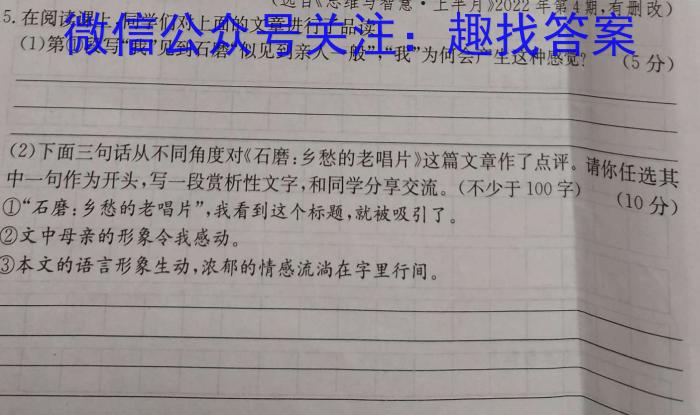 (选自《思维与智慧·上半月》2022年第4期,有删改)
5.在阅读课上,同学们对上面的文章进行了品读。
微信公众号关注：趣找答案
(1)第 段写“我”见到石磨“似见到亲人一般”,“我”为何会产生这种感觉? (5分)
(2)下面三句话从不同角度对《石磨:乡愁的老唱片》这篇文章作了点评。请你任选其
中一句作为开头,写一段赏析性文字,和同学分享交流。(不少于100字) (10分)
①“石磨:乡愁的老唱片”,我看到这个标题,就被吸引了。
②文中母亲的形象令我感动。
③本文的语言形象生动,浓郁的情感流淌在字里行间。